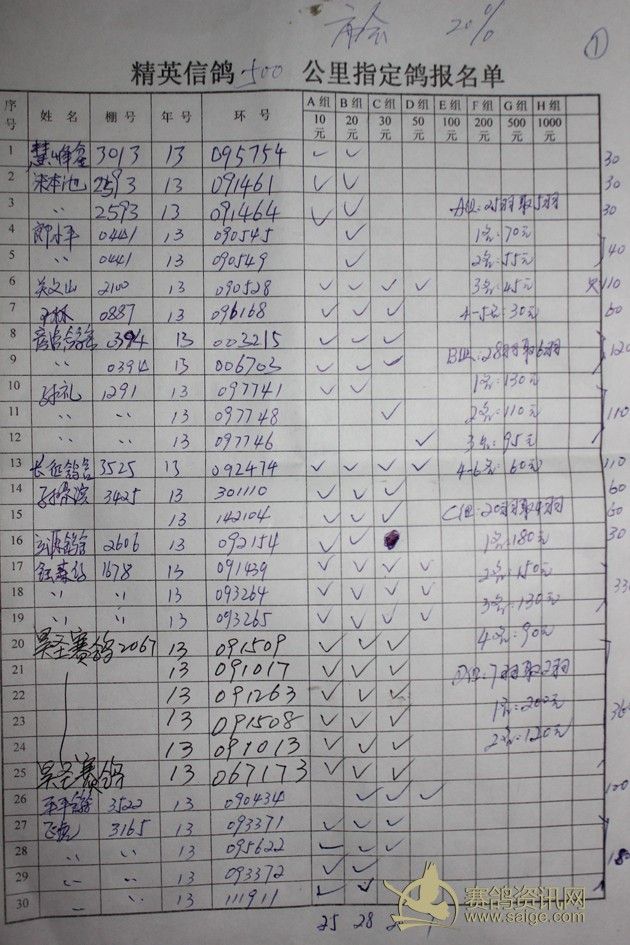 20% ①
精英信鸽 500 公里指定鸽报名单
序号 姓名 棚号 年号 环号 A组10元 B组20元 C组30元 D组50元 E组100元 F组200元 G组500元 H组1000元
1 3013 13 095754 ✓ ✓ 30
2 2593 13 091461 ✓ ✓ 30
3 〃 2593 13 091464 ✓ ✓ A组:25羽取5羽 30
4 0441 13 090545 ✓ 1名:70元
5 〃 0441 13 090549 ✓ 2名:55元 40
6 2100 13 090528 ✓ ✓ ✓ ✓ 3名:45元 110
7 0887 13 096168 ✓ ✓ ✓ 4-5名:30元 60
8 0394 13 003215 ✓ ✓ ✓ B组:28羽取6羽
9 〃 0394 13 006703 ✓ ✓ ✓ 120
10 1291 13 097741 ✓ ✓ 1名:130元
11 〃 〃 13 097748 ✓ 2名:110元 110
12 〃 〃 13 097746 ✓ 3名:95元
13 3525 13 092474 ✓ ✓ ✓ ✓ 4-6名:60元 110
14 3425 13 301110 ✓ ✓ ✓ 60
15 13 142104 ✓ ✓ ✓ C组:20羽取4羽 60
16 2606 13 092154 ✓ ✓ 1名:180元 30
17 1678 13 091439 ✓ ✓ ✓ ✓ 2名:150元
18 〃 〃 13 093264 ✓ ✓ ✓ ✓ 3名:130元 330
19 〃 〃 13 093265 ✓ ✓ ✓ ✓
20 昊圣赛鸽 2067 13 091509 ✓ ✓ ✓ 4名:90元
21 13 091017 ✓ ✓ ✓ D组:7羽取2羽
22 13 091263 ✓ ✓ ✓ 1名:200元
23 13 091508 ✓ ✓ ✓ 360
24 13 091013 ✓ ✓ ✓ 2名:120元
25 昊圣赛鸽 13 067173 ✓ ✓ ✓
26 3522 13 090434 ✓ ✓ ✓ 100
27 飞虎 3165 13 093371 ✓ ✓ ✓
28 〃 〃 13 095622 ✓ ✓ ✓
29 〃 13 093372 ✓ ✓ 180
30 13 111911 ✓ ✓
25 28
赛鸽资讯网
www.saige.com